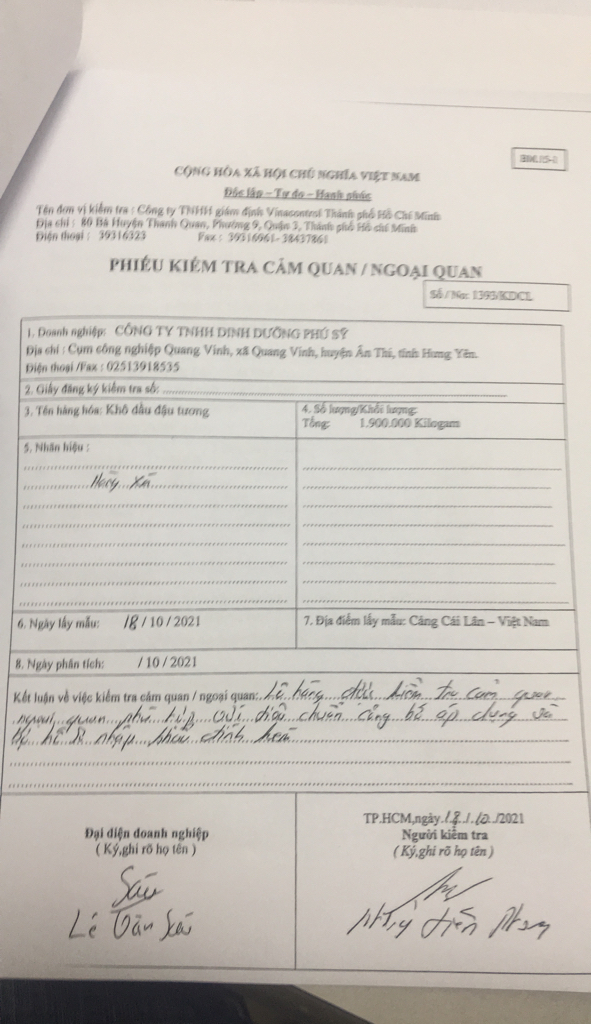 BM.05-1
CỘNG HÒA XÃ HỘI CHỦ NGHĨA VIỆT NAM
Độc lập – Tự do – Hạnh phúc
Tên đơn vị kiểm tra : Công ty TNHH giám định Vinacontrol Thành phố Hồ Chí Minh
Địa chỉ : 80 Bà Huyện Thanh Quan, Phường 9, Quận 3, Thành phố Hồ Chí Minh
Điện thoại : 39316323 Fax : 39316961- 38437861
PHIẾU KIỂM TRA CẢM QUAN / NGOẠI QUAN
Số / No: 1393/KDCL
1. Doanh nghiệp: CÔNG TY TNHH DINH DƯỠNG PHÚ SỸ
Địa chỉ : Cụm công nghiệp Quang Vinh, xã Quang Vinh, huyện Ân Thi, tỉnh Hưng Yên.
Điện thoại /Fax : 02513918535
2. Giấy đăng ký kiểm tra số:
3. Tên hàng hóa: Khô dầu đậu tương
4. Số lượng/Khối lượng:
Tổng: 1.900.000 Kilogam
5. Nhãn hiệu :
Hàng xá
6. Ngày lấy mẫu: 18 / 10 / 2021
7. Địa điểm lấy mẫu: Cảng Cái Lân – Việt Nam
8. Ngày phân tích: / 10 / 2021
Kết luận về việc kiểm tra cảm quan / ngoại quan: Lô hàng được kiểm tra cảm quan
ngoại quan phù hợp với tiêu chuẩn công bố áp dụng và
nhập khẩu
TP.HCM,ngày 18 / 10 /2021
Đại diện doanh nghiệp
( Ký,ghi rõ họ tên )
Người kiểm tra
( Ký,ghi rõ họ tên )
Sáu
Lê Văn Sáu